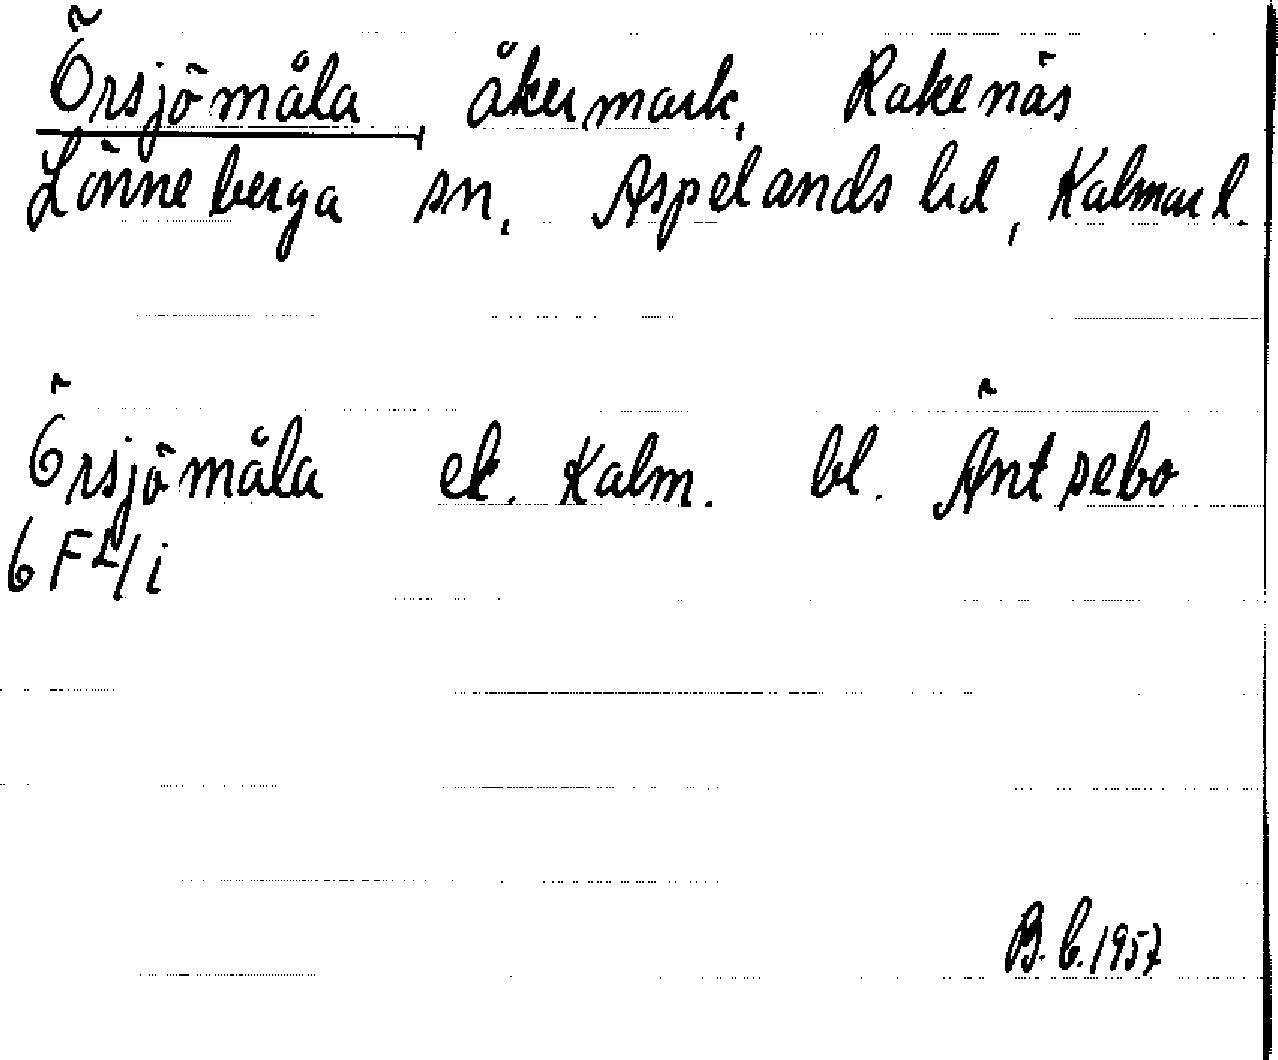 Örsjömåla åkermark, Rakenäs
Lönneberga sn, Aspelands hd, Kalmar l.
Örsjömåla ek. Kalm. bl. Äntsebo
6 F L/i
B.b. 1957